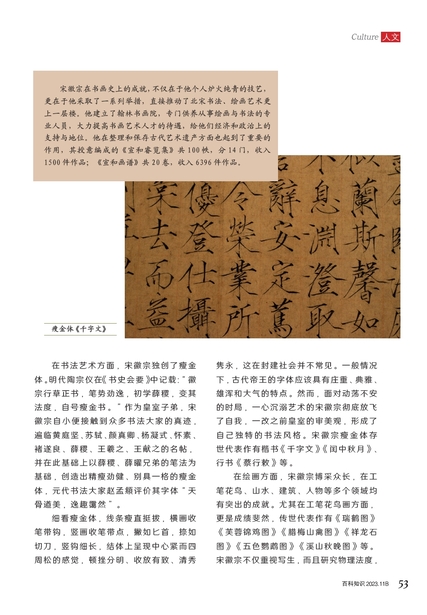 Culture 人文
宋徽宗在书画史上的成就，不仅在于他个人炉火纯青的技艺，
更在于他采取了一系列举措，直接推动了北宋书法、绘画艺术更
上一层楼。他建立了翰林书画院，专门供养从事绘画与书法的专
业人员，大力提高书画艺术人才的待遇，给他们经济和政治上的
支持与地位。他在整理和保存古代艺术遗产方面也起到了重要的
作用，其授意编成的《宣和睿览集》共100帙，分14门，收入
1500件作品；《宣和画谱》共20卷，收入6396件作品。
蘭斯馨如
不息淵澄取
辭安定篤
令榮業所
優登仕攝
棠去而益
瘦金体《千字文》
在书法艺术方面，宋徽宗独创了瘦金
体。明代陶宗仪在《书史会要》中记载：“徽
宗行草正书，笔势劲逸，初学薛稷，变其
法度，自号瘦金书。”作为皇室子弟，宋
徽宗自小便接触到众多书法大家的真迹，
遍临黄庭坚、苏轼、颜真卿、杨凝式、怀素、
褚遂良、薛稷、王羲之、王献之的名帖，
并在此基础上以薛稷、薛曜兄弟的笔法为
基础，创造出精瘦劲健、别具一格的瘦金
体，元代书法大家赵孟頫评价其字体“天
骨遒美，逸趣霭然”。
细看瘦金体，线条瘦直挺拔，横画收
笔带钩，竖画收笔带点，撇如匕首，捺如
切刀，竖钩细长，结体上呈现中心紧而四
周松的感觉，顿挫分明、收放有致、清秀
隽永，这在封建社会并不常见。一般情况
下，古代帝王的字体应该具有庄重、典雅、
雄浑和大气的特点。然而，面对动荡不安
的时局，一心沉溺艺术的宋徽宗彻底放飞
了自我，一改之前皇室的审美观，形成了
自己独特的书法风格。宋徽宗瘦金体存
世代表作有楷书《千字文》《闰中秋月》、
行书《蔡行敕》等。
在绘画方面，宋徽宗博采众长，在工
笔花鸟、山水、建筑、人物等多个领域均
有突出的成就。尤其在工笔花鸟画方面，
更是成绩斐然，传世代表作有《瑞鹤图》
《芙蓉锦鸡图》《腊梅山禽图》《祥龙石
图》《五色鹦鹉图》《溪山秋晚图》等。
宋徽宗不仅重视写生，而且研究物理法度，
百科知识 2023.11B 53